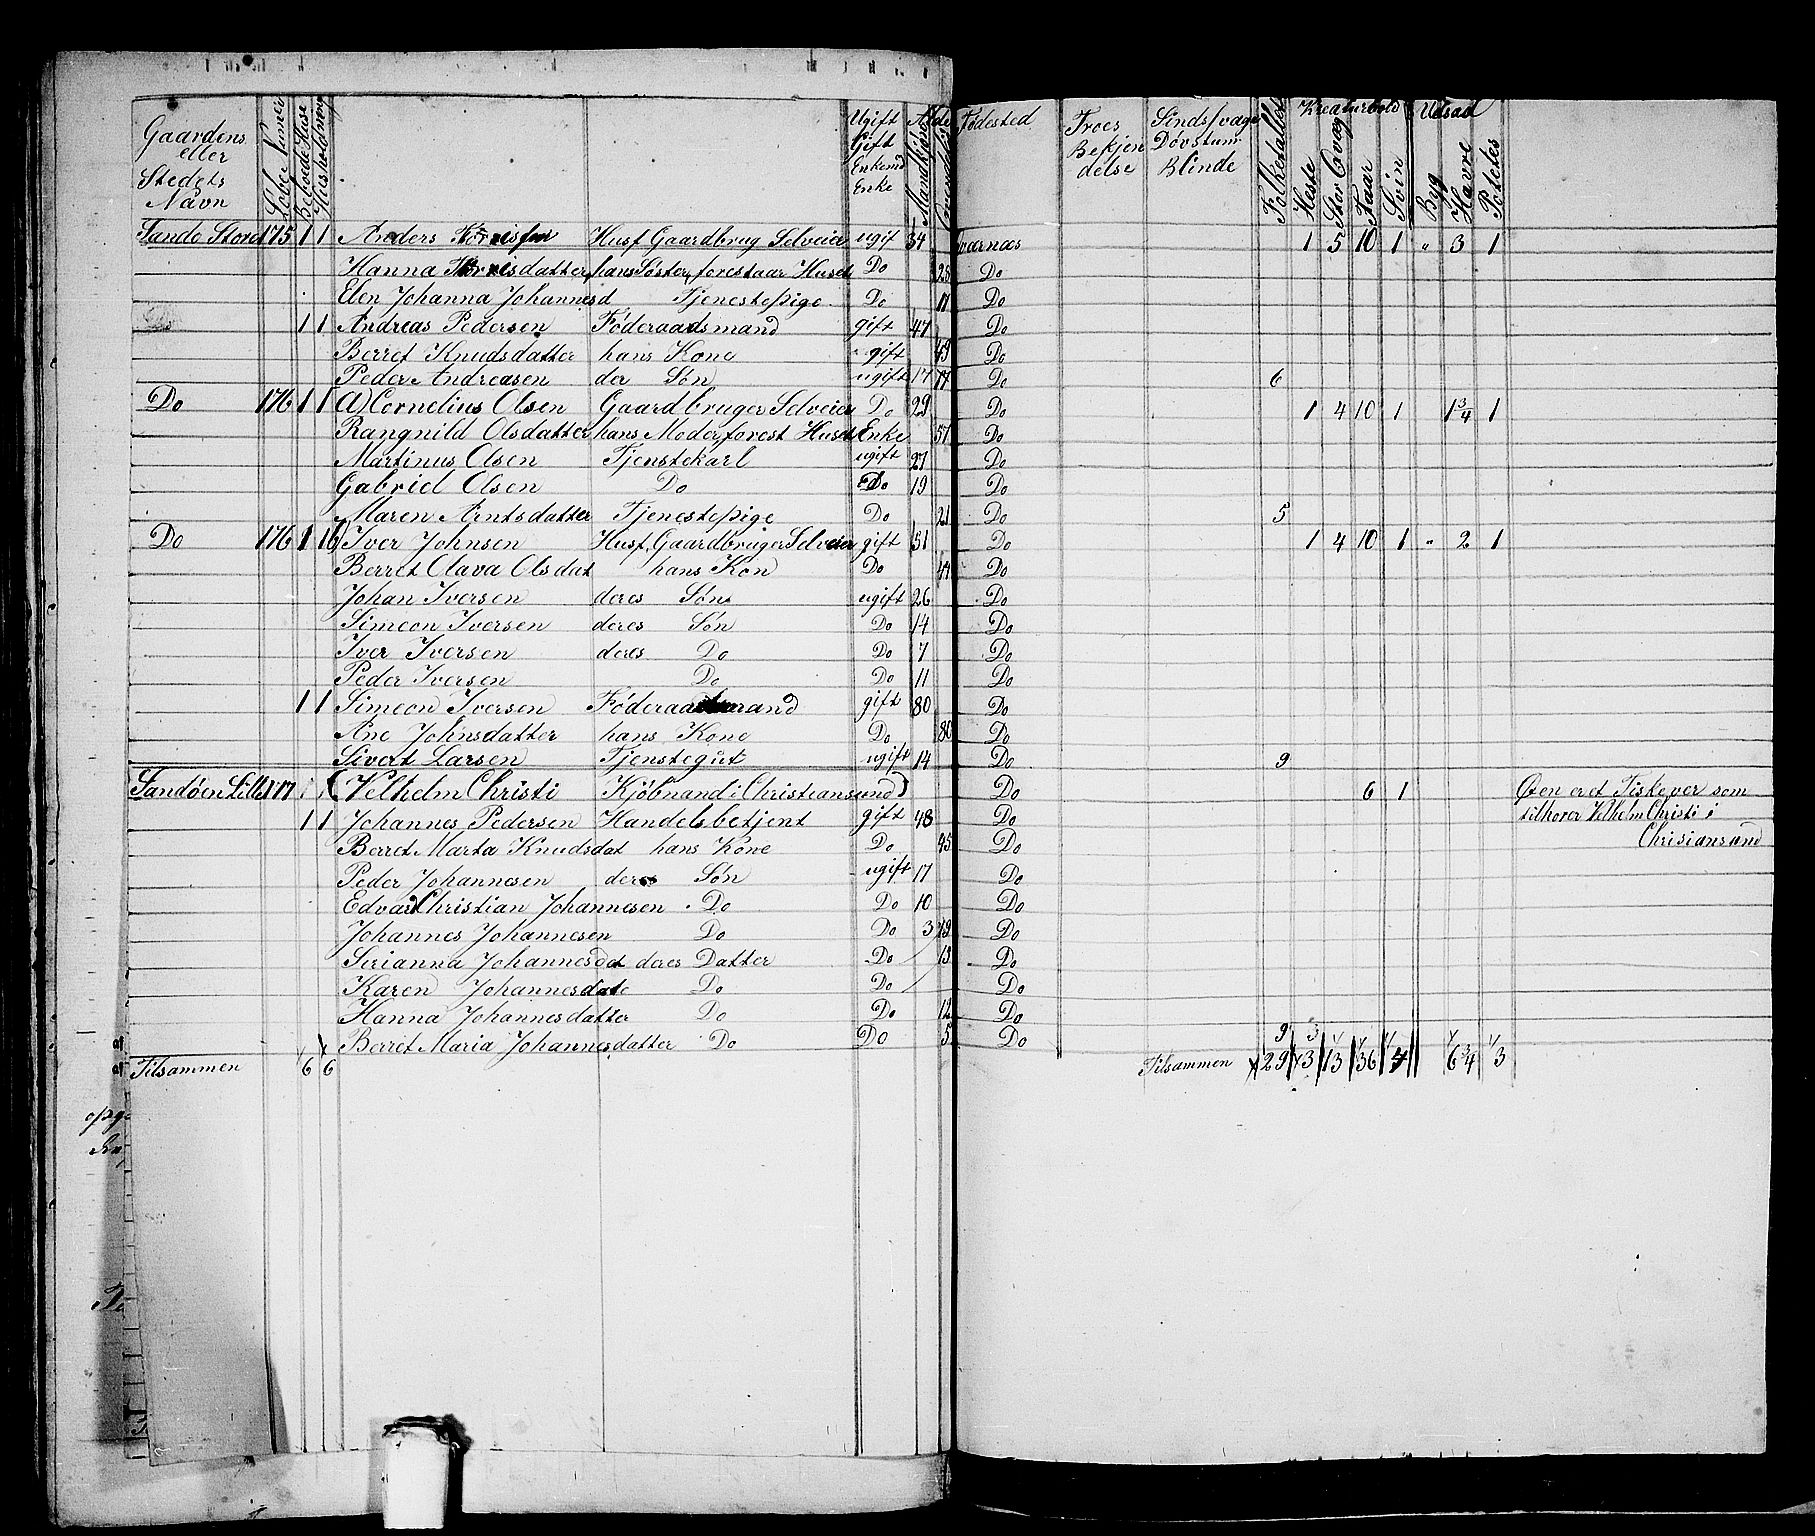 Gaardens eller Stedets Navn | Løbe Numer | Beboede Huse | Huusholdninger | Ugift Gift Enkemd Enke | Alder Mandkjøn Qvendekjøn | Fødested | Troes Bekjendelse | Sindssvage Døvstum Blinde | Folketallet | Kreaturhold Heste Stor Qvæg Faar Svin | Udsæd Byg Havre Potetes
Sandø Store 175 1 1 Anders Husf Gaardbrug Selveier ugif 34 Værnæs 1 5 10 1 " 3 1
Hanna hans Søster, forestaar Huset Do 25 Do
Elen Johanna Johannesd Tjenestepige Do 17 Do
1 1 Andreas Pedersen Føderaadsmand gift 47 Do
Berret Knudsdatter hans Kone gift 49 Do
Peder Andreasen der Søn ugift 17 Do 6
Do 176 1 1 a) Cornelius Olsen Gaardbruger Selveier Do 29 Do 1 4 10 1 1 3/4 1
Rangnild Olsdatter hans Moder, forest Huset Enke 57 Do
Martinus Olsen Tjenstekarl ugift 27 Do
Gabriel Olsen Do Do 19 Do
Maren Arntsdatter Tjenestepige Do 21 Do 5
Do 176 1 1 b) Iver Johnsen Husf, Gaardbruger Selveier gift 51 Do 1 4 10 1 " 2 1
Berret Olava Olsdat hans Kon Do 44 Do
Johan Iversen deres Søn ugift 26 Do
Simeon Iversen deres Søn Do 14 Do
Iver Iversen deres Do Do 7 Do
Peder Iversen Do Do 11 Do
1 1 Simeon Iversen Føderaadsmand gift 80 Do
Ane Johnsdatter hans Kone Do 80 Do
Sivert Larsen Tjenstegut ugift 14 Do 9
Sandøen Lille 177 (Velhelm Christi Kjøbmand i Christiansund) Do 6 1 Øen er et Fiskevær som
1 1 Johannes Pedersen Handelsbetjent gift 48 Do tilhører Velhelm Christi i
Berret Marta Knudsdat hans Kone Do 45 Do Chrisiansund
Peder Johannesen deres Søn ugift 17 Do
Edvard Christian Johannesen Do Do 10 Do
Johannes Johannesen Do Do 3 Do
Sirianna Johannesdat deres Datter Do Do
Karen Johannesdat Do Do Do
Hanna Johannesdatter Do Do 12 Do
Berret Maria Johannesdatter Do Do 5 Do 9
Tilsammen 6 6 Tilsammen 29 3 13 36 4 6 3/4 3